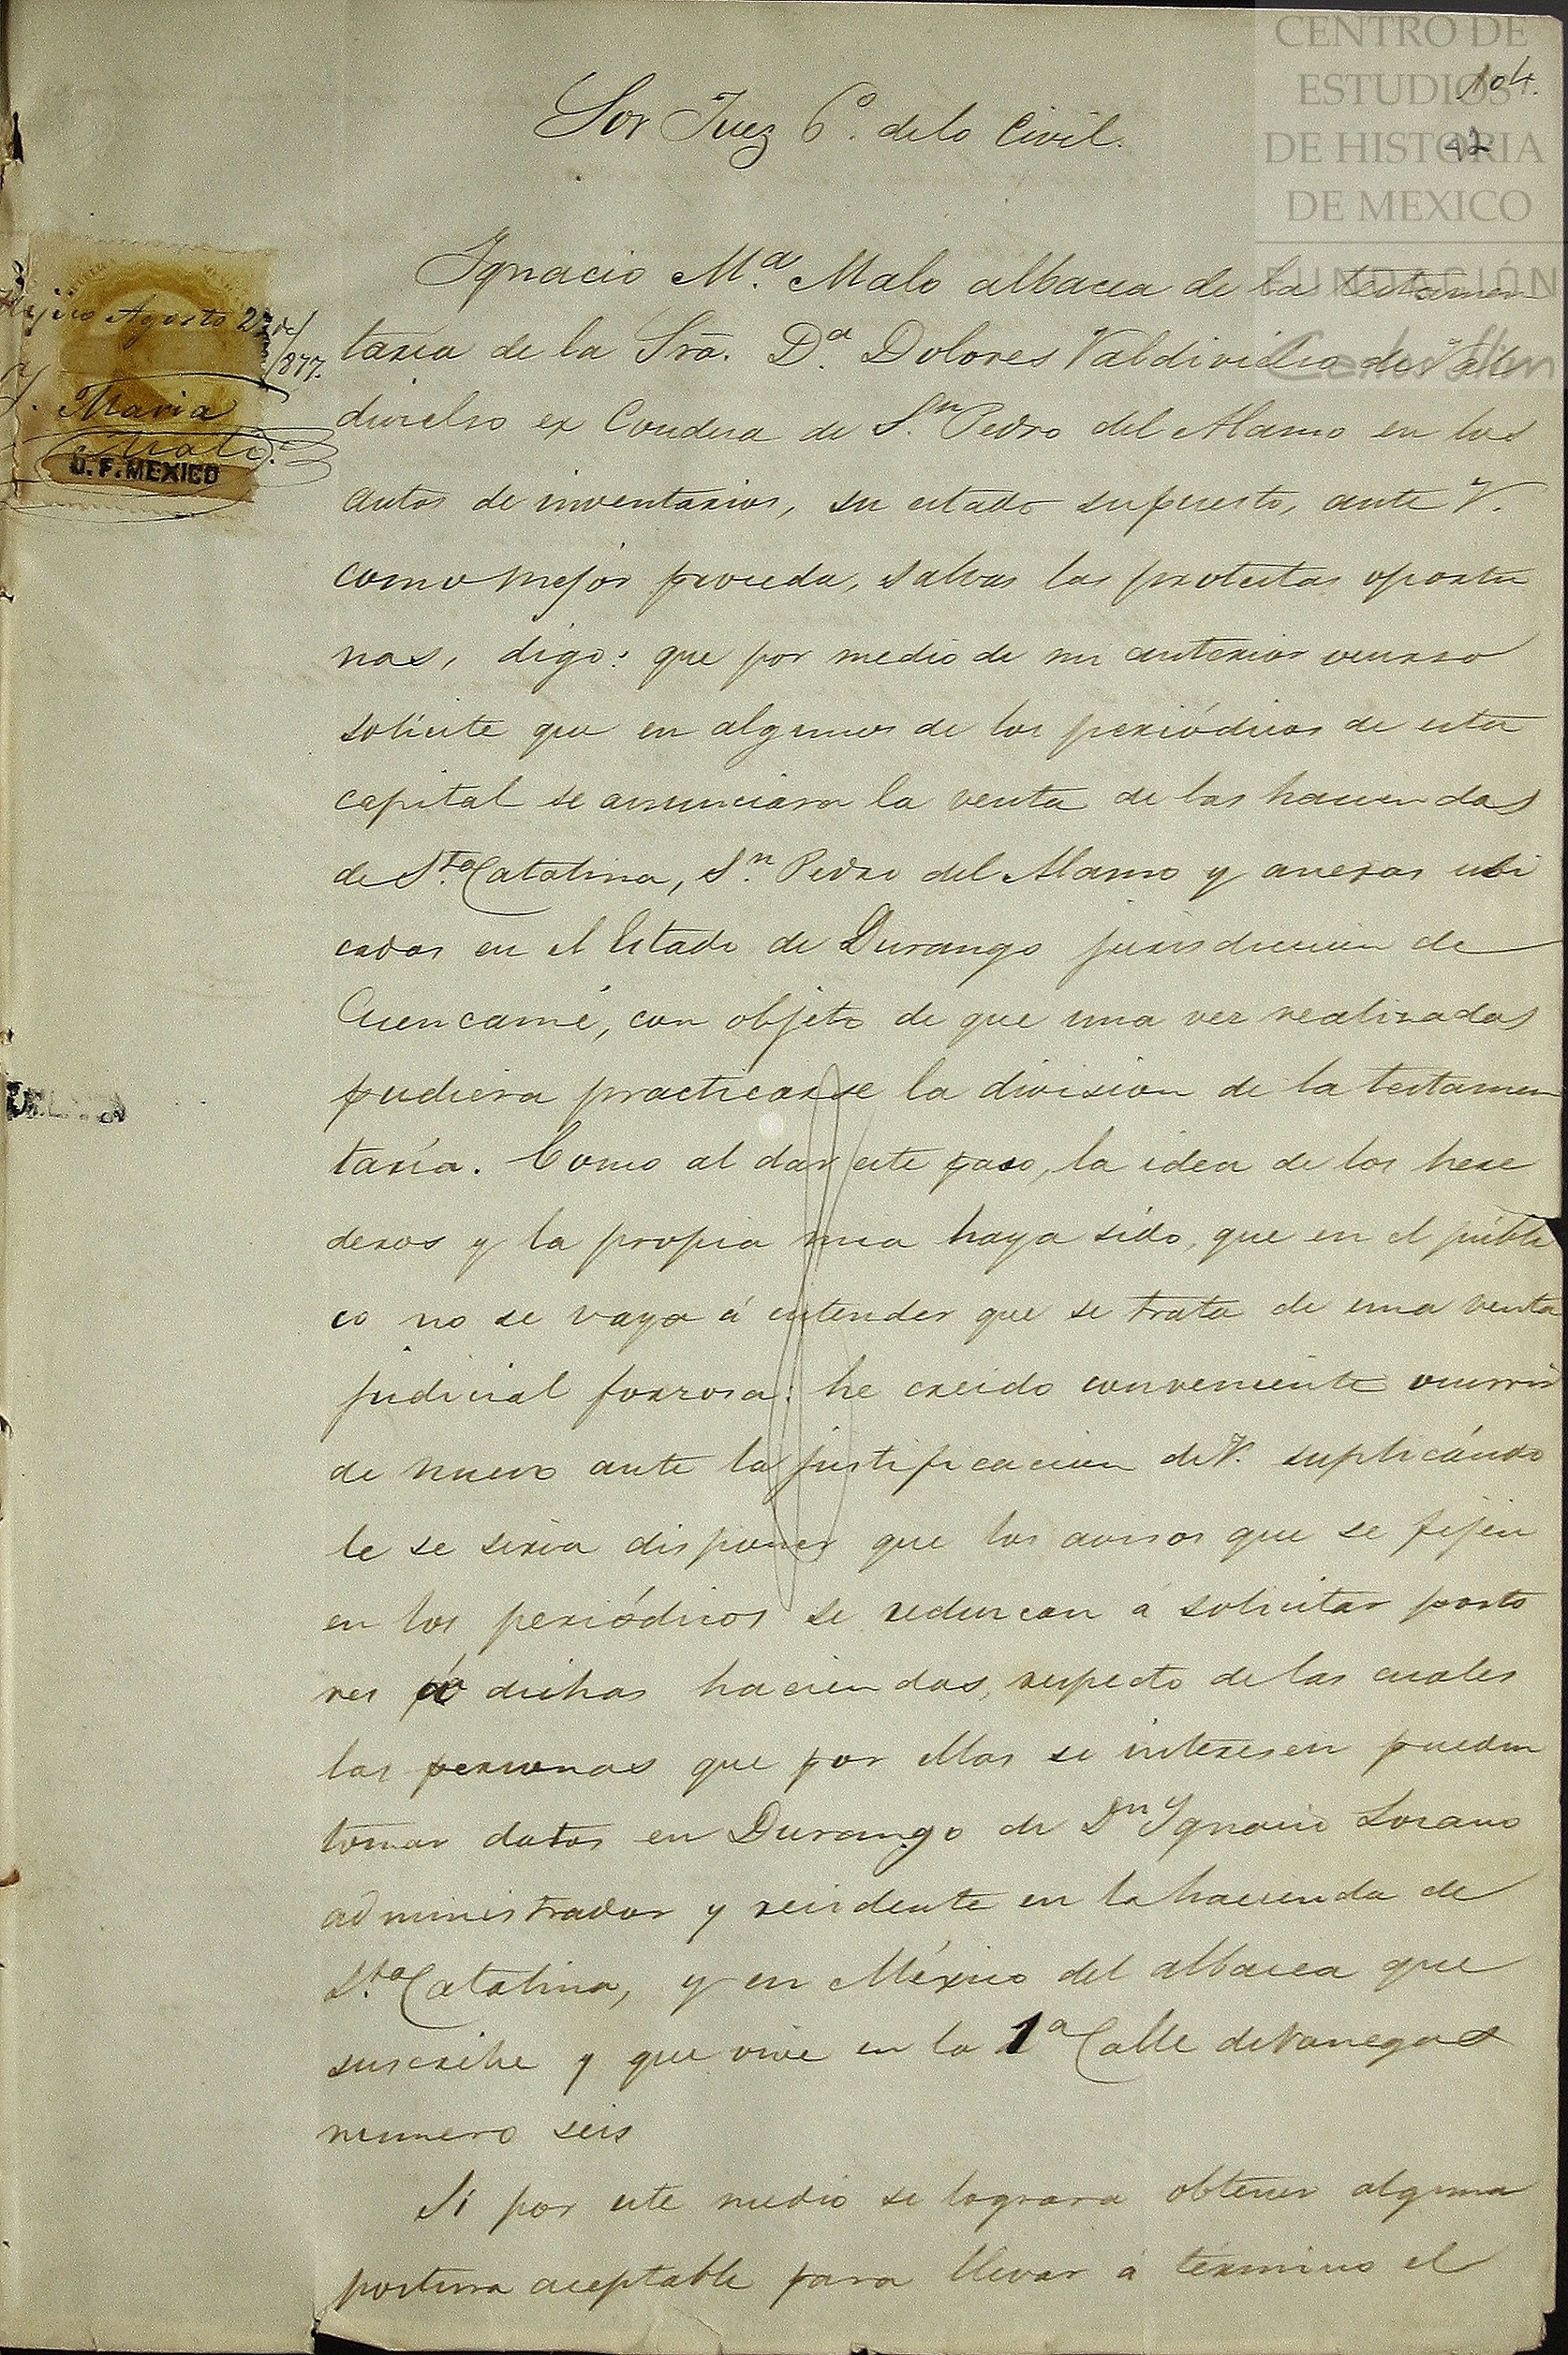 CENTRO DE
ESTUDIOS
DE HISTORIA
DE MEXICO
FUNDACIÓN
Carlos Slim
104.
42
Sor Juez 6º. de lo Civil.
Méjico Agosto 27 de
1877.
Y. Maria
Malo
D. F. MEXICO
Ignacio M.ª Malo albacea de la testamen
taria de la Sra. D.ª Dolores Valdivielso de Val
divielso ex Condesa de S.n Pedro del Alamo en los
autos de inventarios, su estado supuesto, ante V.
como mejor proceda, salvas las protestas oportu
nas, digo: que por medio de mi anterior ocurso
solicite que en algunos de los periódicos de esta
capital se anunciara la venta de las haciendas
de S.ta Catalina, S.n Pedro del Alamo y anexas ubi
cadas en el Estado de Durango jurisdiccion de
Cuencamé, con objeto de que una vez realizadas
pudiera practicarse la division de la testamen
taría. Como al dar este paso, la idea de los here
deros y la propia mia haya sido, que en el públi
co no se vaya á entender que se trata de una venta
judicial forzosa: he creido conveniente ocurrir
de nuevo ante la justificacion de V. suplicándo
le se sirva disponer que los avisos que se fijen
en los periódicos se reduzcan á solicitar posto
res á dichas haciendas, respecto de las cuales
las personas que por ellas se interesen pueden
tomar datos en Durango de Dn Ignacio Lozano
administrador y residente en la hacienda de
S.ta Catalina, y en México del albacea que
suscribe y que vive en la 1ª Calle de Vanegas
numero seis
Si por este medio se lograra obtener alguna
postura aceptable para llevar á término el